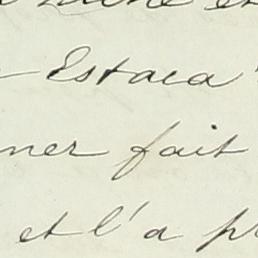 Estaca
ner fait
et l'a pr